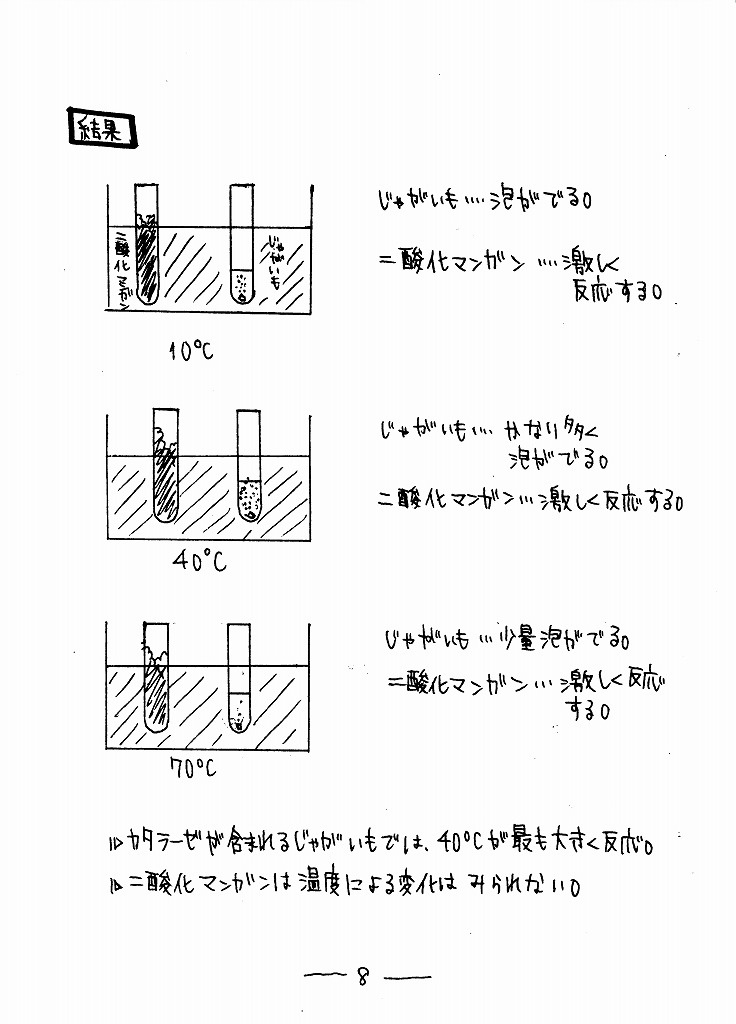 結果
二酸化マンガン
じゃがいも
じゃがいも…. 泡がでる。
二酸化マンガン …激しく
反応する。
10℃
じゃがいも… かなり多く
泡がでる。
二酸化マンガン…激しく反応する。
40℃
じゃがいも …少量泡がでる。
二酸化マンガン… 激しく反応
する。
70℃
⇒カタラーゼが含まれるじゃがいもでは、40℃が最も大きく反応。
⇒二酸化マンガンは温度による変化は みられない。
— 8 —